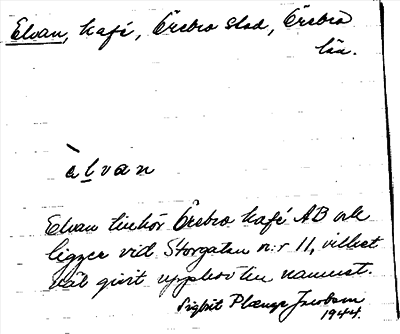 Elvan, kafé, Örebro stad, Örebro
län.
àlvan
Elvan tillhör Örebro kafé AB och
ligger vid Storgatan n:r 11, vilket
väl givit upphov till namnet.
Sigbrit Plænge Jacobson
1944.